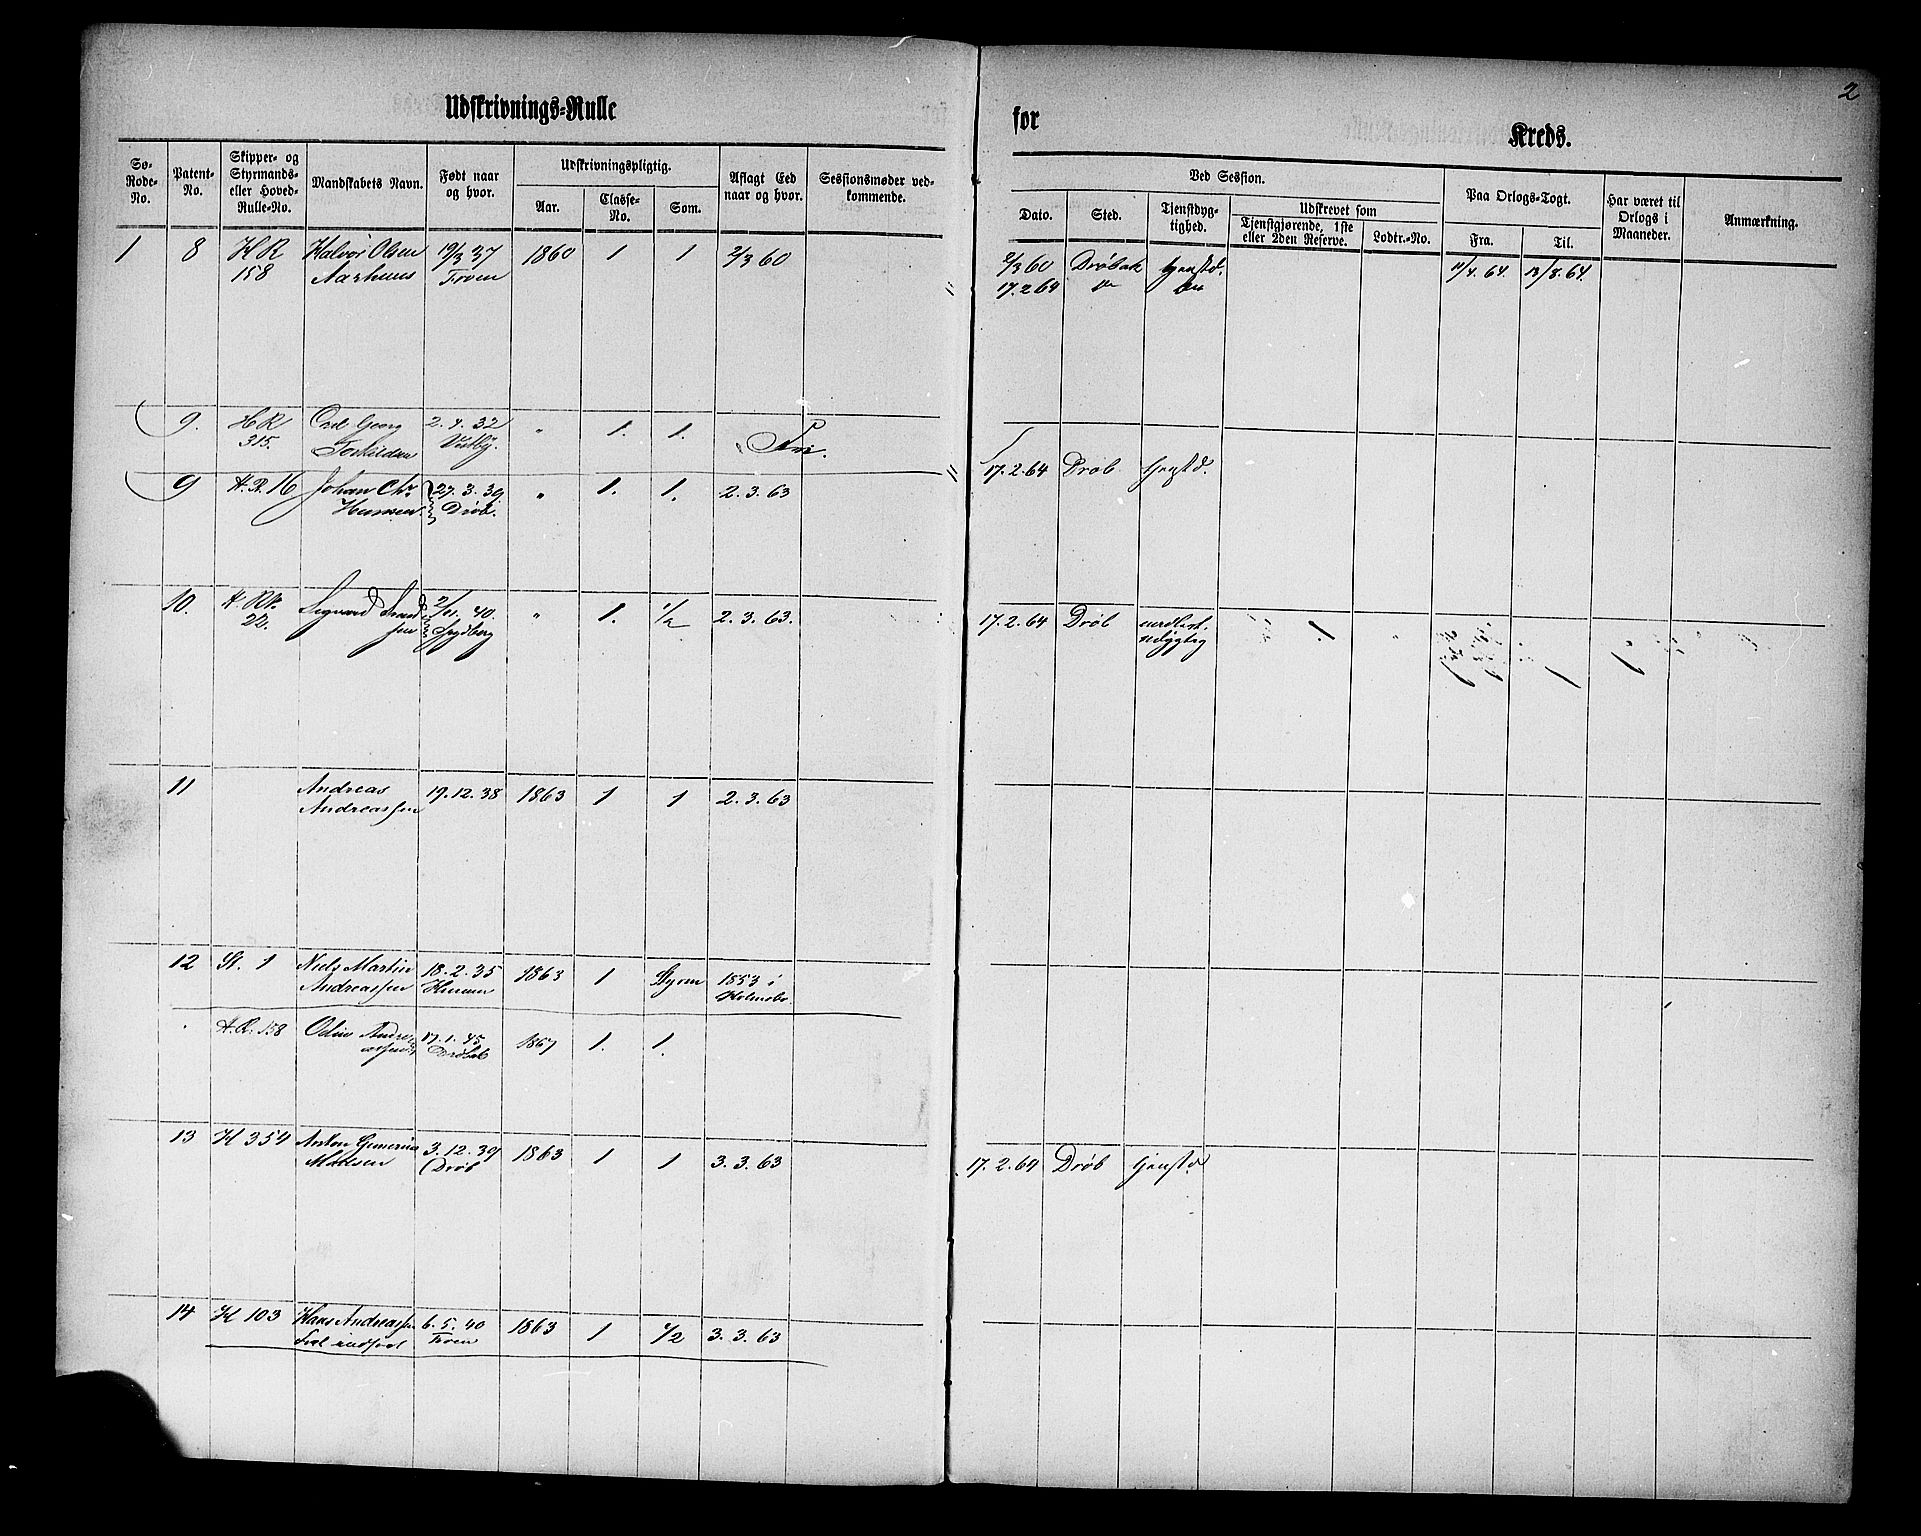 2
Udskrivnings-Rulle
for
Kreds.
Sø-Rode-No.
Patent-No.
Skipper- og Styrmands- eller Hoved-Rulle-No.
Mandskabets Navn.
Født naar og hvor.
Udskrivningspligtig.
Aar.
Classe-No.
Som.
Aflagt Eed naar og hvor.
Sessionsmøder vedkommende.
Ved Session.
Dato.
Sted.
Tjenstdygtighed.
Udskrevet som
Tjenstgjørende, 1ste eller 2den Reserve.
Lodtr.-No.
Paa Orlogs-Togt.
Fra.
Til.
Har været til Orlogs i Maaneder.
Anmærkning.
1 8 HR Halvor Olsen 19/3 37 1860 1 1 2/3 60 2/3 60 Drøbak tjenstd. 11/4.64. 13/8.64.
158 Aarhuus Froen 17.2.64
9. HR Georg 2.4.32 " 1. 1.
315. Torkildsen Vestby.
9 H.R.16 Johan Chr 27.3.39 " 1. 1. 2.3.63 17.2.64 Drøb tjenstd.
Hansen Drøb.
10. 40. " 1. 1/2 2.3.63. 17.2.64 Drøb
22. sen
11 Andreas 19.12.38 1863 1 1 2.3.63
Andreassen
12 St. 1 Niels Martin 18.2.35 1863 1 Styrm 1853 i
Andreassen Hurum Holmsbo
H.R. 158 Odin Andre- 17.1.45 1867 1. 1.
assen Drøbak
13 H 354 Anton Gunerius 3.12.39 1863 1 1 3.3.63 17.2.64 Drøb tjenstd
Madsen Drøb
14 H 103 Hans Andreassen 6.5.40 1863 1 1/2 3.3.63
Froen